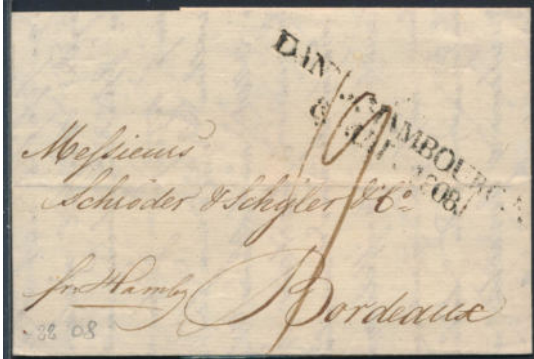 DAN HAMBOURG
1808.
19
Messieurs
Schröder & Schÿler & Co.
Bordeaux
08